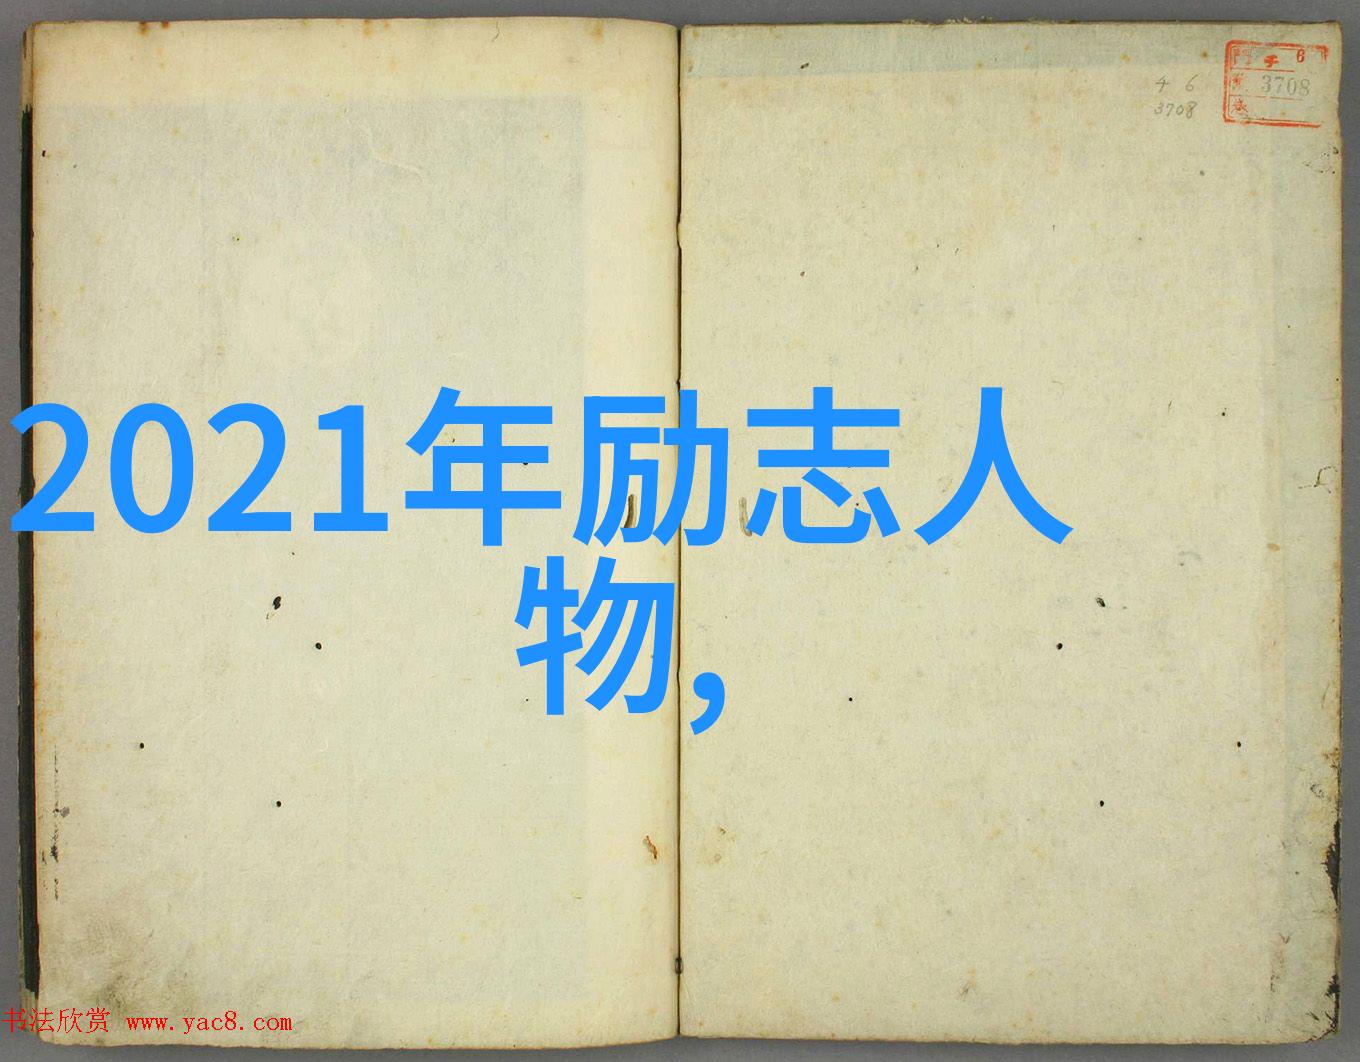 チ 6
3708
4 6
3708
2021年励志人
物,
书法欣赏 www.yac8.com